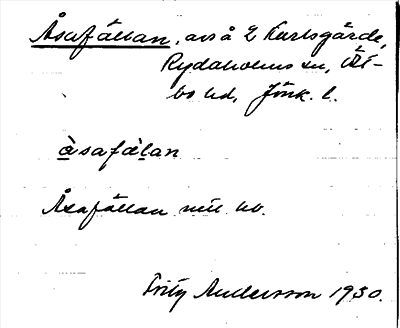 Åsafällan, avs å 2 Karlsgärde,
Rydaholms sn, Öst-
bo hd, Jönk. l.
àsafä̀lan
Åsafällan mtl hb.
Fritz Andersson 1930.